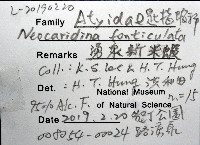 L-20190220
Family Atyidae 匙指蝦科
Neocaridina fonticulata
Remarks 湧泉新米蝦
Coll.: K.S. Lee & H.T. Hung
Det.: H.T. Hung
National Museum
95% Alc. F. of Natural Science n=15
Date 2019.2.20 墾丁公園
008054-00024